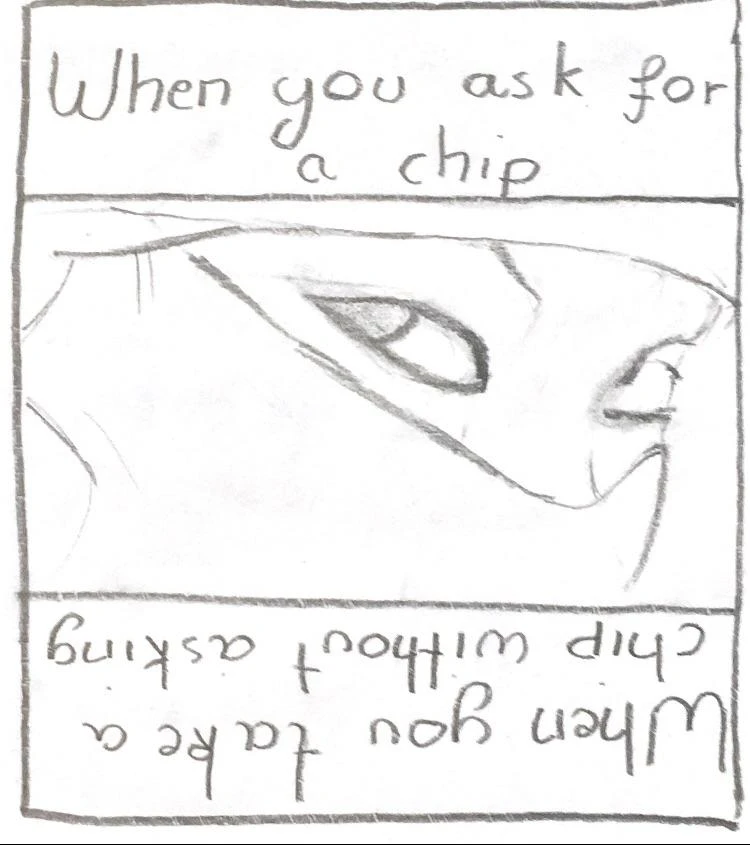 When you ask for
a chip
When you take a
chip without asking